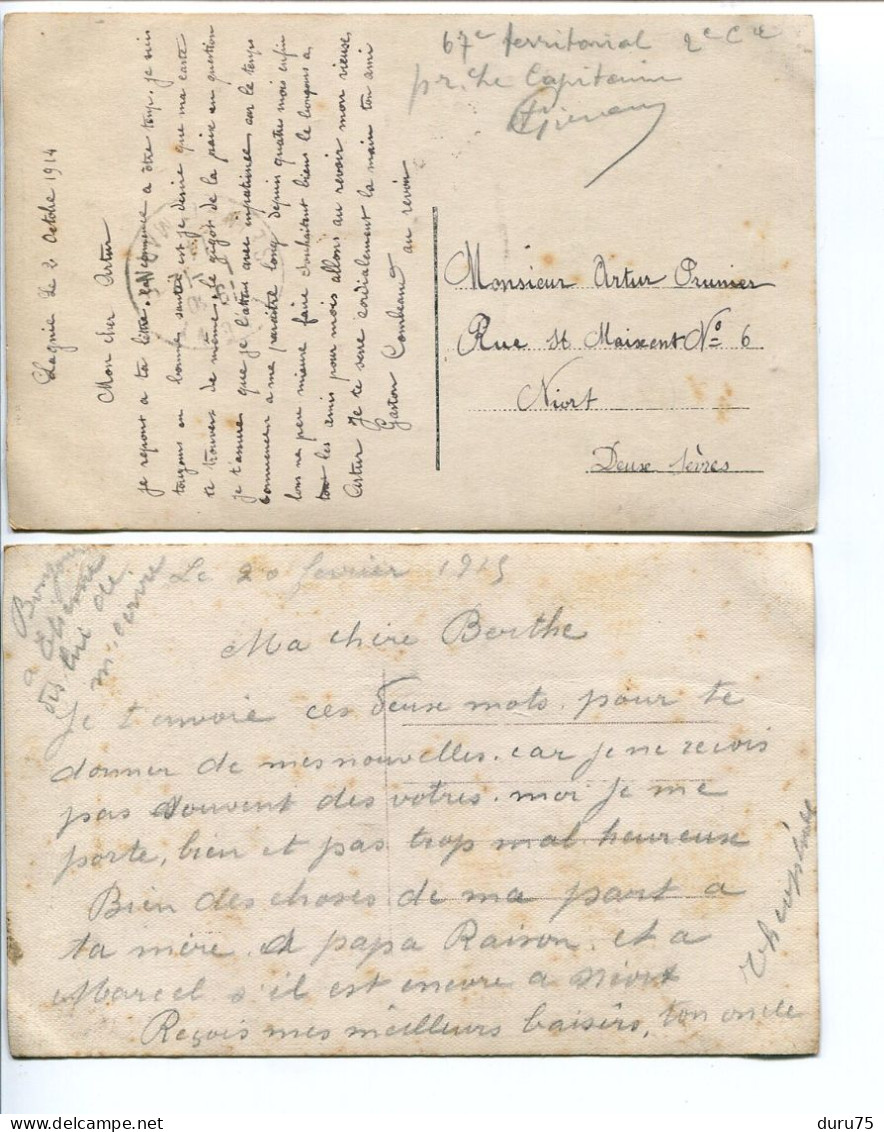 Lagnie Le 20 Octobre 1914
Mon cher Artur
je repont a ta lettre. sa commence a être temp. je suis
toujours en bonne santée et je desire que ma carte
te trouvera de même, le gigot de la paix en question
je t'assure que je l'attens avec inpatience car le temps
commence a me paraitre long depuis quatre mois enfin
lons ne peu mieux faire souhaitont biens le bonjour a
tout les amis pour mois allons au revoir mon vieux,
Artur Je te serre cordialement la main ton ami
Gaston Combeau au revoir
67e territorial 2e Cie
pr. Le Capitaine
Monsieur Artur Prunier
Rue St Maixent No 6
Niort
Deux Sèvres
Le 20 fevrier 1915
Bonjour
a Etienne
dis lui de
m'ecrire
Ma chère Berthe
Je t'envoie ces deux mots pour te
donner de mes nouvelles. car je ne recois
pas souvent des votres. moi je me
porte, bien et pas trop mal heureux
Bien des choses de ma part a
ta mère. et papa Raison. et a
Marcel s'il est encore a Niort
Reçois mes meilleurs baisers, ton oncle
Theophile
duru75